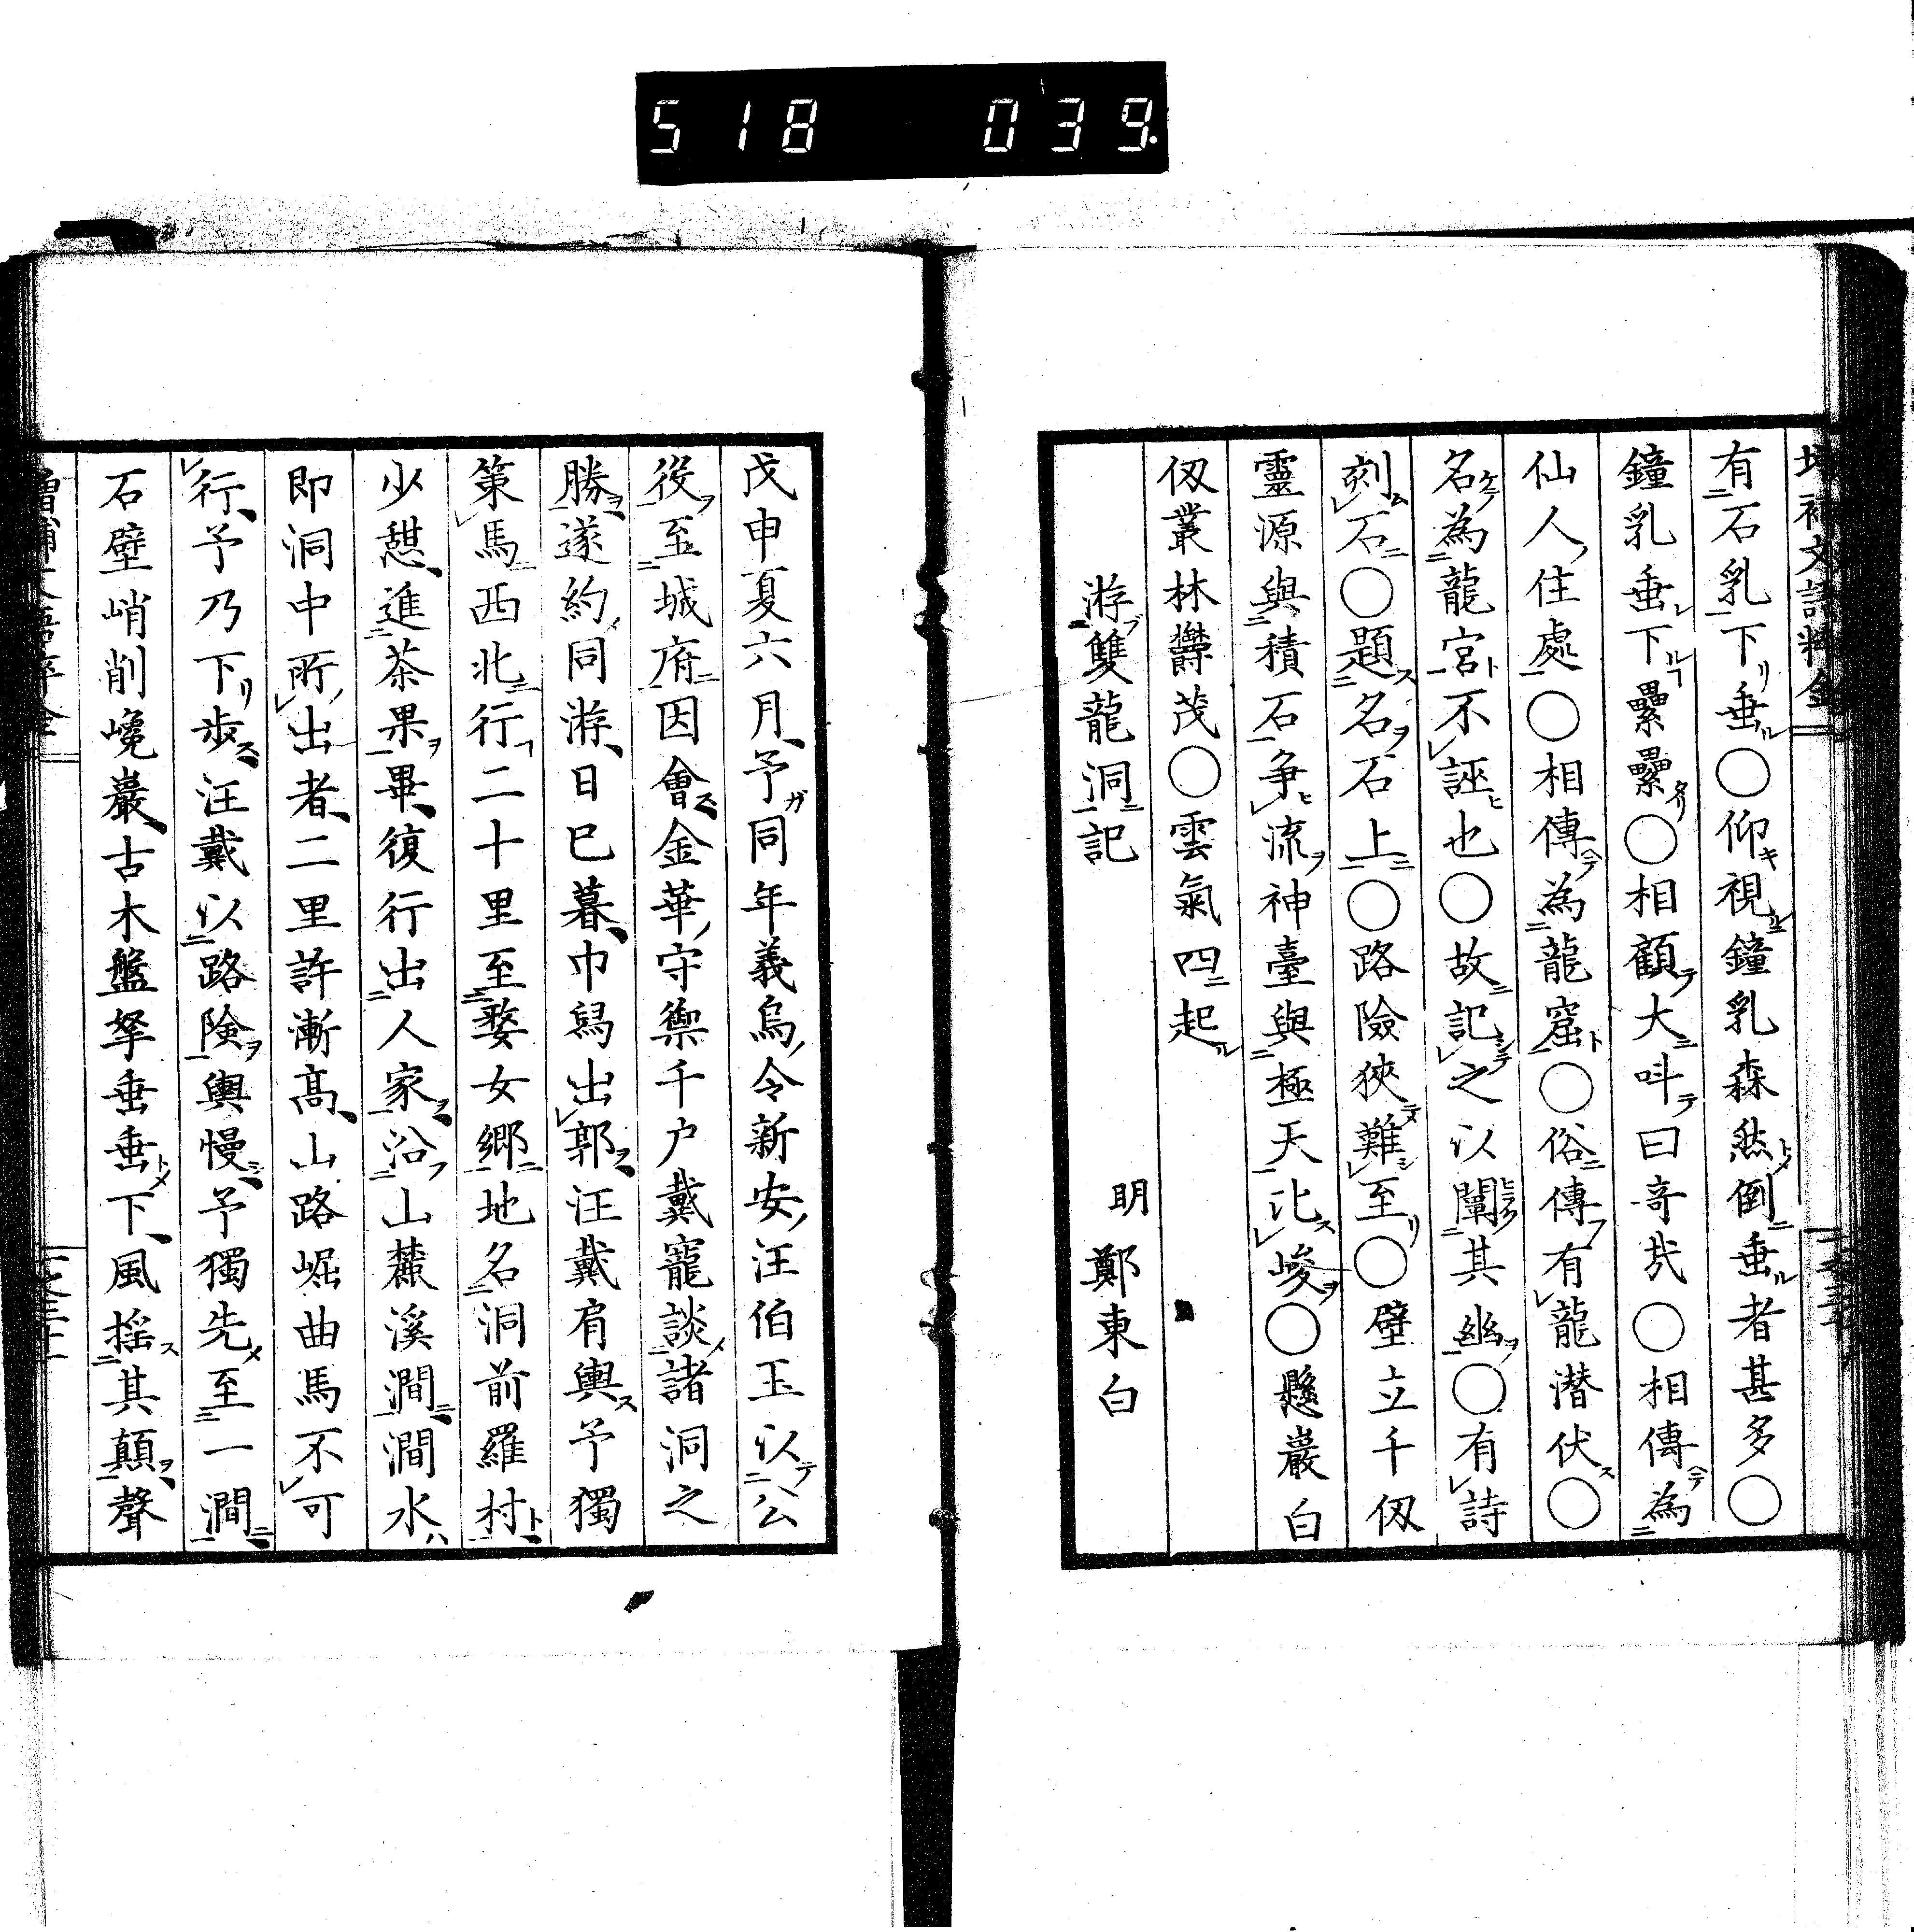 518 039.
有石乳下垂○仰視鐘乳森然倒垂者甚多○
鐘乳垂下纍纍○相顧大呌曰竒㦲○相傳為
仙人住處○相傳為龍窟○俗傳有龍潜伏○
名為龍宮不誣也○故記之以闡其幽○有詩
刻石○題名石上○路險狹難至○壁立千仭
靈源與積石争流神臺與極天比峻○懸巖白
仭叢林欝茂○雲氣四起
游雙龍洞記 明 鄭東白
戊申夏六月、予同年義烏令新安汪伯玉以公
役至城府因會金華守禦千户戴寵談諸洞之
勝、遂約同游、日已暮、巾舄出郭、汪戴肩輿予獨
策馬西北行二十里至婺女鄉地名洞前羅村、
少憇、進茶果畢、復行出人家、沿山麓溪澗、澗水
即洞中所出者、二里許漸髙、山路崛曲馬不可
行、予乃下步、汪戴以路険輿慢、予獨先至一澗、
石壁峭削巉巖、古木盤拏垂垂下、風揺其顛、聲